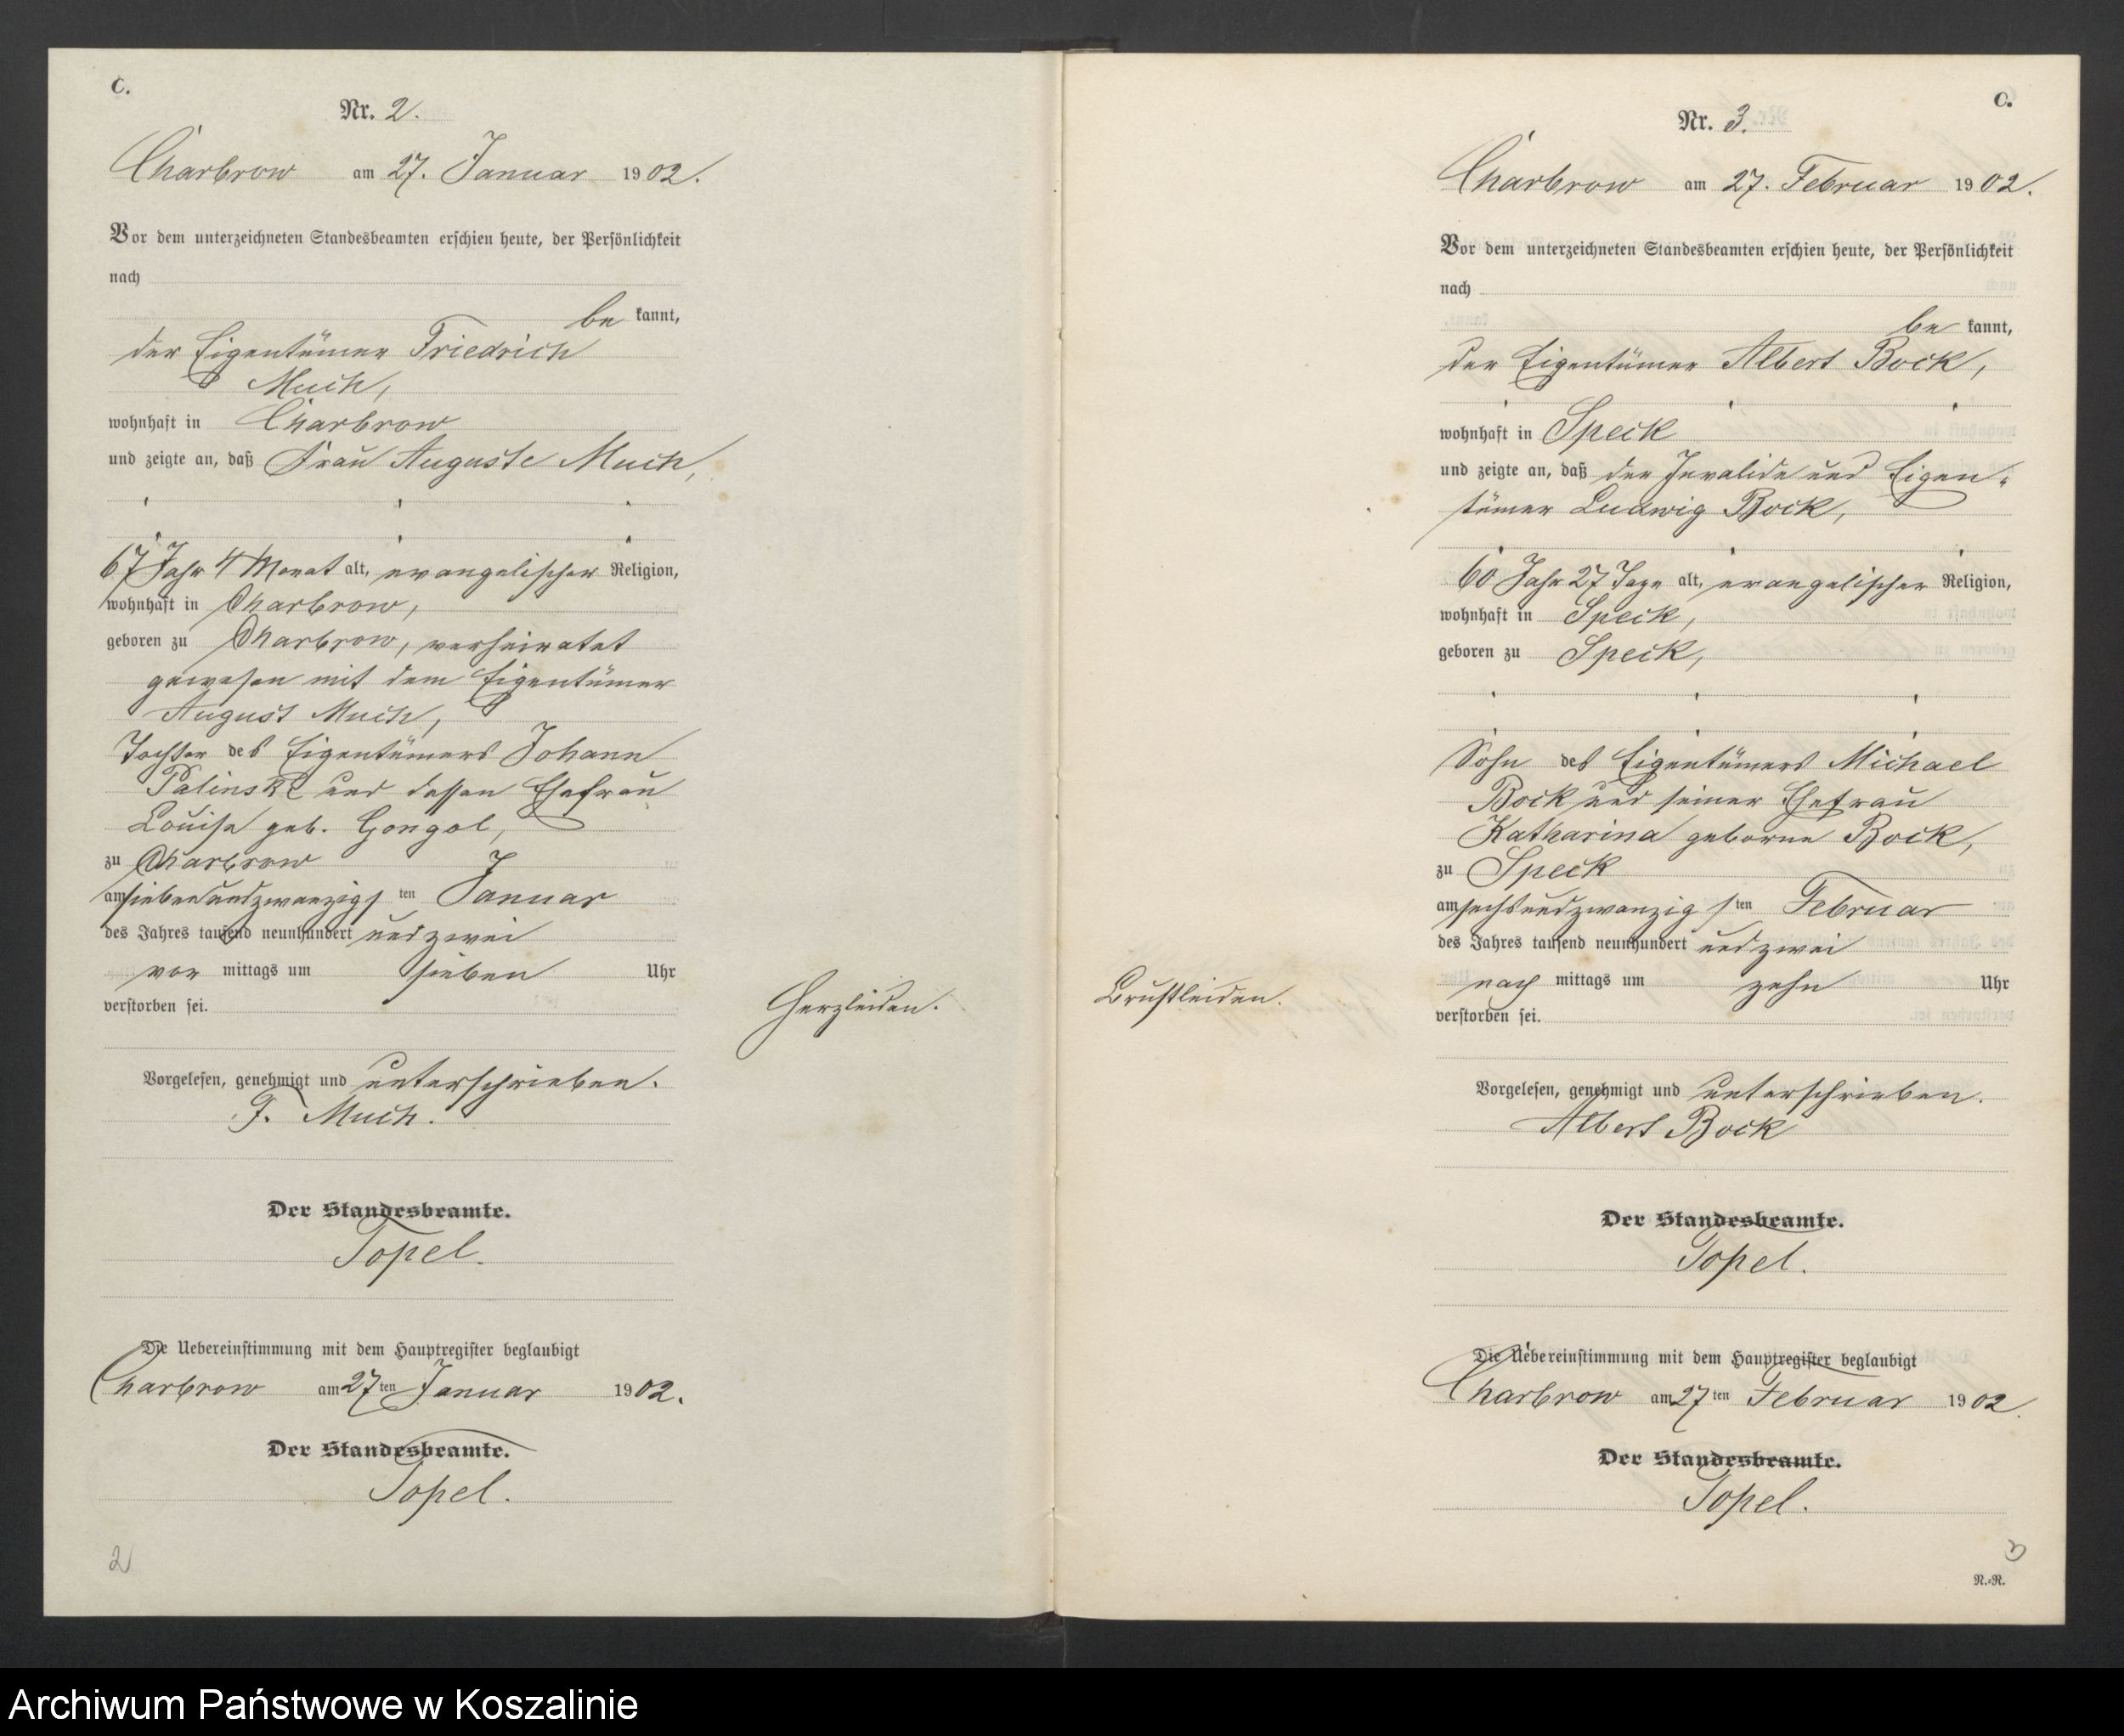 C.
Nr. 2.
Charbrow am 27. Januar 1902.
Vor dem unterzeichneten Standesbeamten erschien heute, der Persönlichkeit
nach
be kannt,
der Eigentümer Friedrich
Much,
wohnhaft in Charbrow
und zeigte an, daß Frau Auguste Much,
67 Jahr 4 Monat alt, evangelischer Religion,
wohnhaft in Charbrow,
geboren zu Charbrow, verheiratet
gewesen mit dem Eigentümer
August Much,
Tochter des Eigentümers Johann
Palinski und dessen Ehefrau
Louise geb. Gongol,
zu Charbrow
am siebenundzwanzigsten Januar
des Jahres tausend neunhundert und zwei
vor mittags um sieben Uhr
verstorben sei.
Herzleiden.
Vorgelesen, genehmigt und unterschrieben.
F. Much.
Der Standesbeamte.
Topel.
Die Uebereinstimmung mit dem Hauptregister beglaubigt
Charbrow am 27ten Januar 1902.
Der Standesbeamte.
Topel.
2
C.
Nr. 3.
Charbrow am 27. Februar 1902.
Vor dem unterzeichneten Standesbeamten erschien heute, der Persönlichkeit
nach
be kannt,
der Eigentümer Albert Bock,
wohnhaft in Speck
und zeigte an, daß der Invalide und Eigen-
tümer Ludwig Bock,
60 Jahr 27 Tage alt, evangelischer Religion,
wohnhaft in Speck,
geboren zu Speck,
Sohn des Eigentümers Michael
Bock und seiner Ehefrau
Katharina geborne Bock,
zu Speck
am sechsundzwanzigsten Februar
des Jahres tausend neunhundert und zwei
nach mittags um zehn Uhr
verstorben sei.
Brustleiden.
Vorgelesen, genehmigt und unterschrieben.
Albert Bock
Der Standesbeamte.
Topel.
Die Uebereinstimmung mit dem Hauptregister beglaubigt
Charbrow am 27ten Februar 1902.
Der Standesbeamte.
Topel.
3
N.-R.
Archiwum Państwowe w Koszalinie